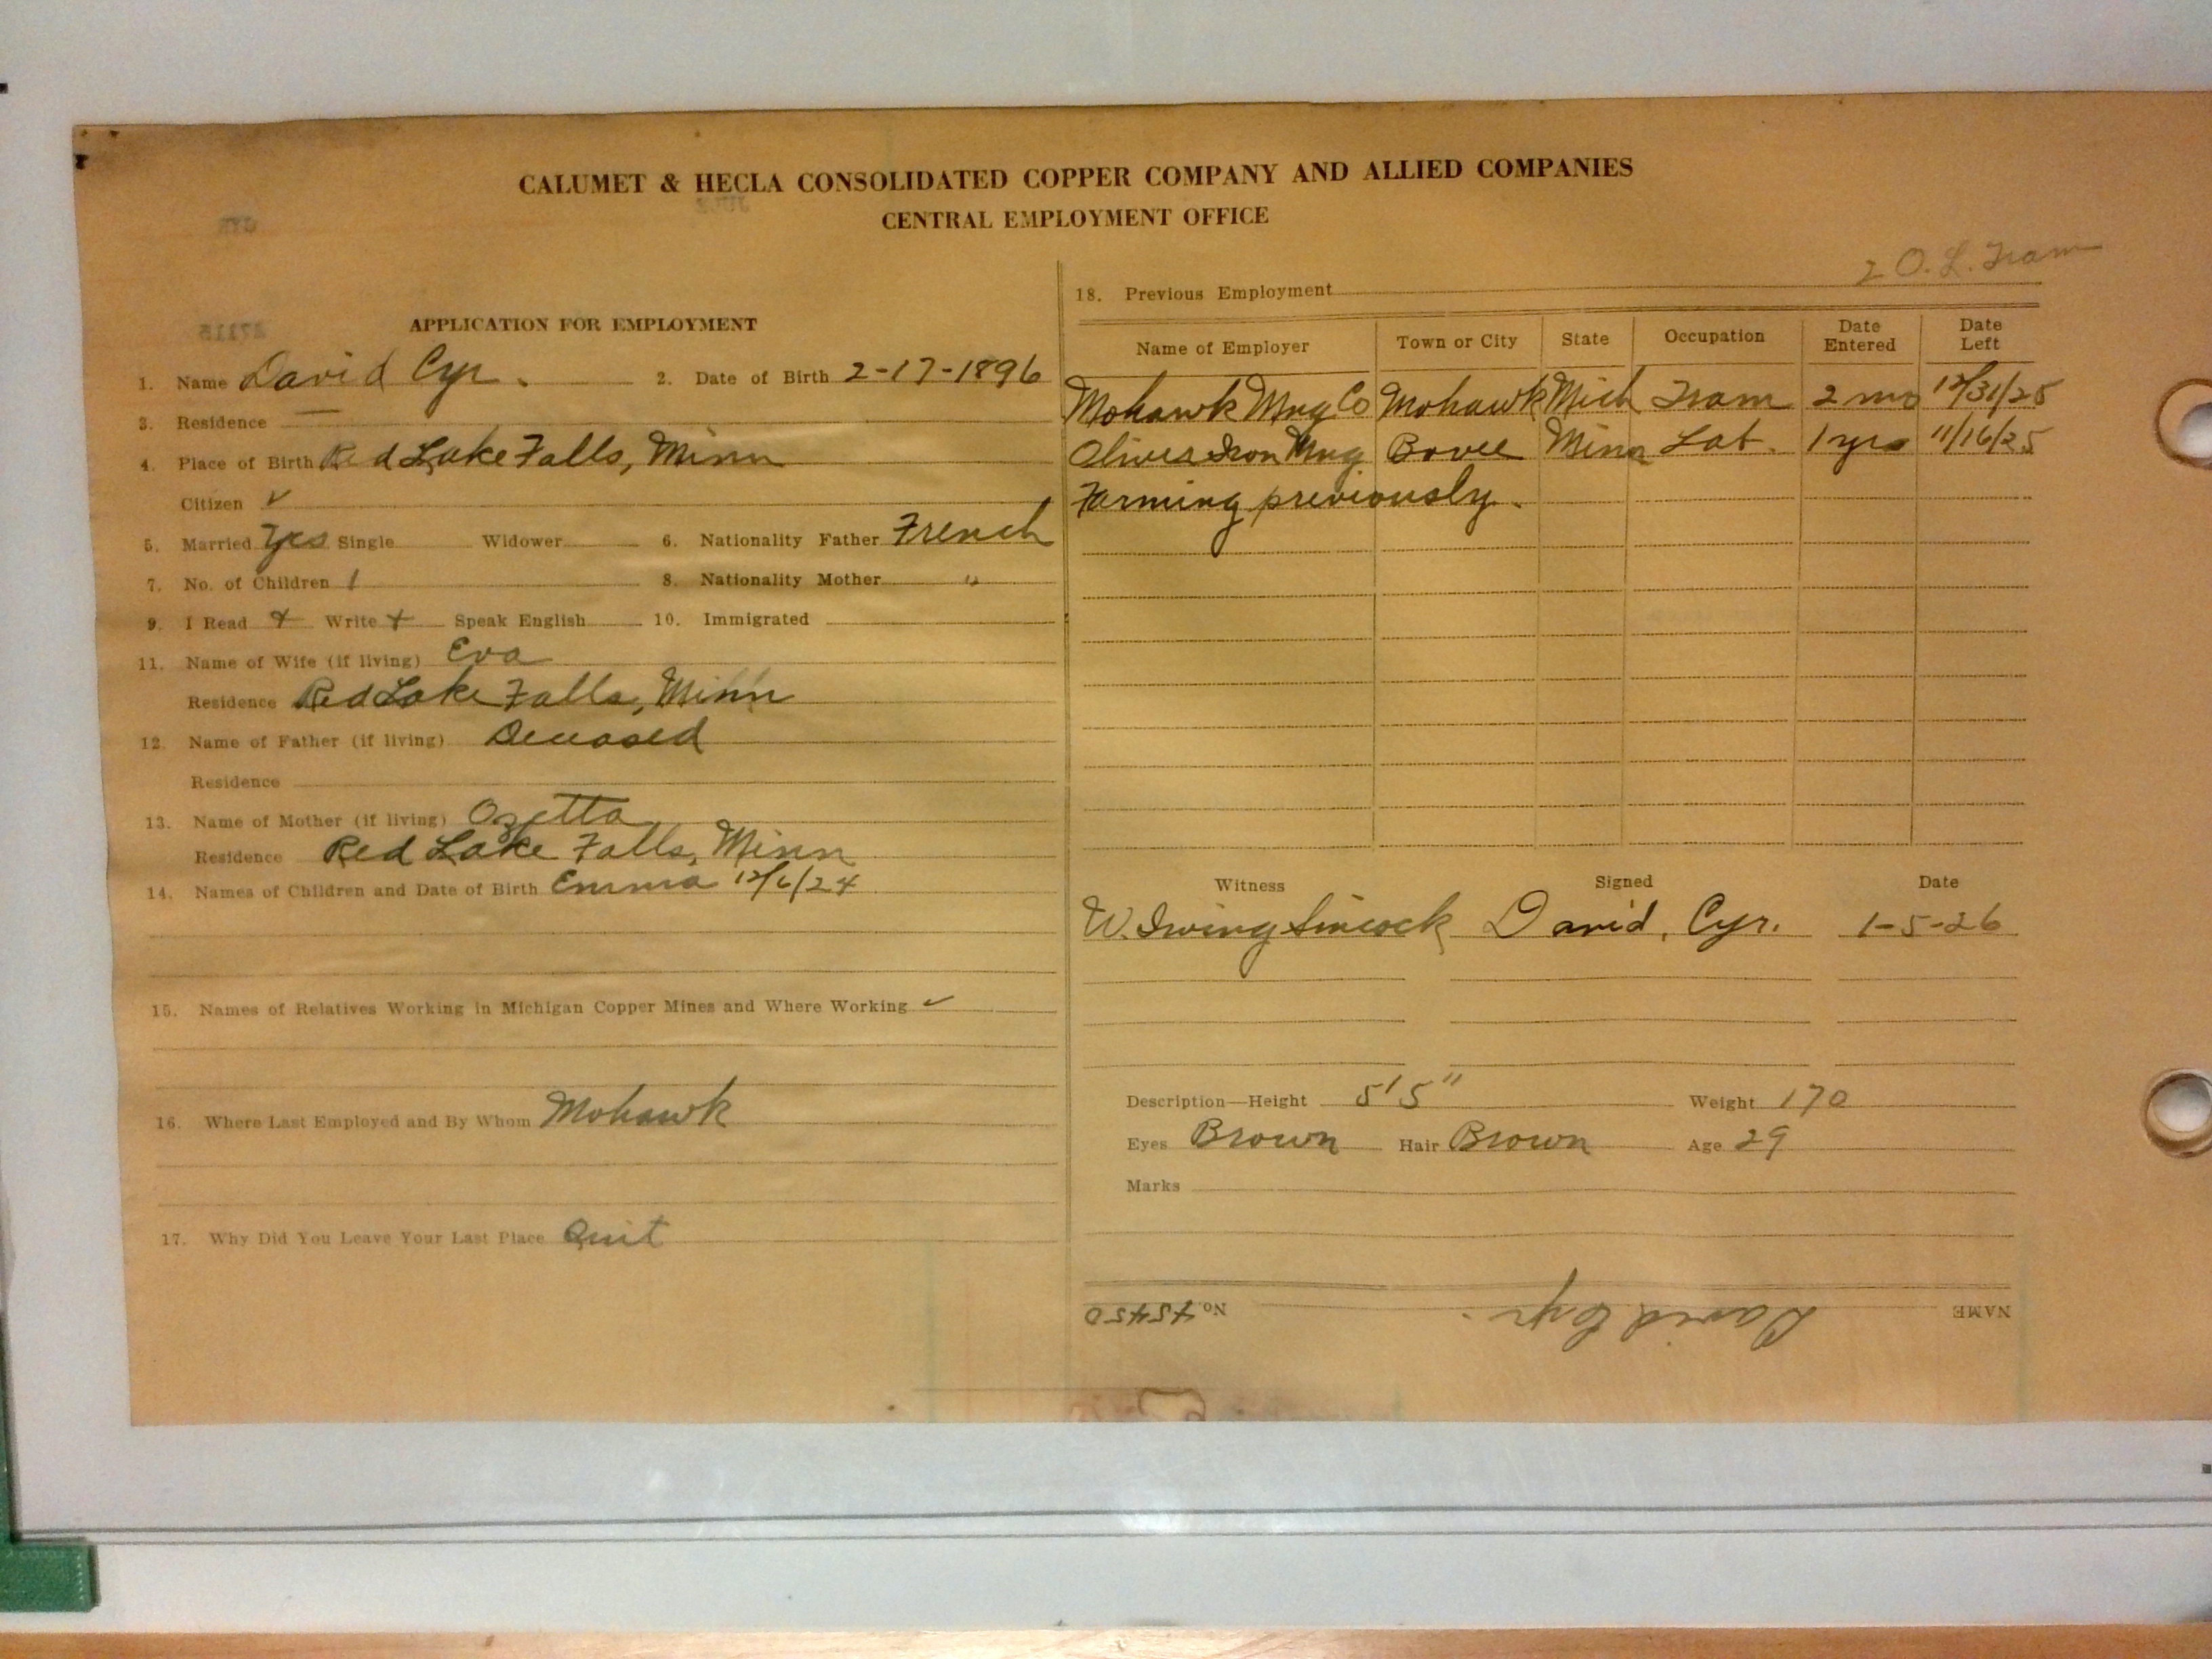 CALUMET & HECLA CONSOLIDATED COPPER COMPANY AND ALLIED COMPANIES
CENTRAL EMPLOYMENT OFFICE
2 O. L. Tram
APPLICATION FOR EMPLOYMENT
1. Name David Cyr. 2. Date of Birth 2-17-1896
3. Residence —
4. Place of Birth Red Lake Falls, Minn
Citizen ✓
5. Married Yes Single Widower 6. Nationality Father French
7. No. of Children 1 8. Nationality Mother "
9. I Read + Write + Speak English 10. Immigrated
11. Name of Wife (if living) Eva
Residence Red Lake Falls, Minn
12. Name of Father (if living) Deceased
Residence
13. Name of Mother (if living) Ozetta
Residence Red Lake Falls, Minn
14. Names of Children and Date of Birth Emma 12/6/24
15. Names of Relatives Working in Michigan Copper Mines and Where Working ✓
16. Where Last Employed and By Whom Mohawk
17. Why Did You Leave Your Last Place Quit
18. Previous Employment
Name of Employer Town or City State Occupation Date Entered Date Left
Mohawk Mng Co Mohawk Mich Tram 2 mo 12/31/25
Oliver Iron Mng Bovee Minn Lab. 1 yrs 11/16/25
Farming previously.
Witness Signed Date
W. Irving Sincock David, Cyr. 1-5-26
Description—Height 5'5" Weight 170
Eyes Brown Hair Brown Age 29
Marks
NAME David Cyr. No.